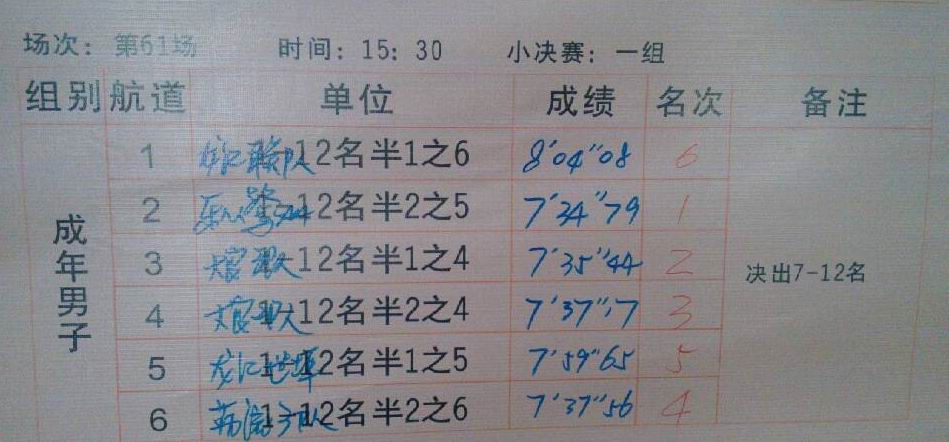 场次: 第61场 时间: 15: 30 小决赛: 一组
组别 航道 单位 成绩 名次 备注
成年男子
1 1-12名半1之6 8'04"08 6
2 1-12名半2之5 7'34"79 1
3 1-12名半1之4 7'35"44 2
决出7-12名
4 1-12名半2之4 7'37"17 3
5 龙江 1-12名半1之5 7'59"65 5
6 1-12名半2之6 7'37"56 4